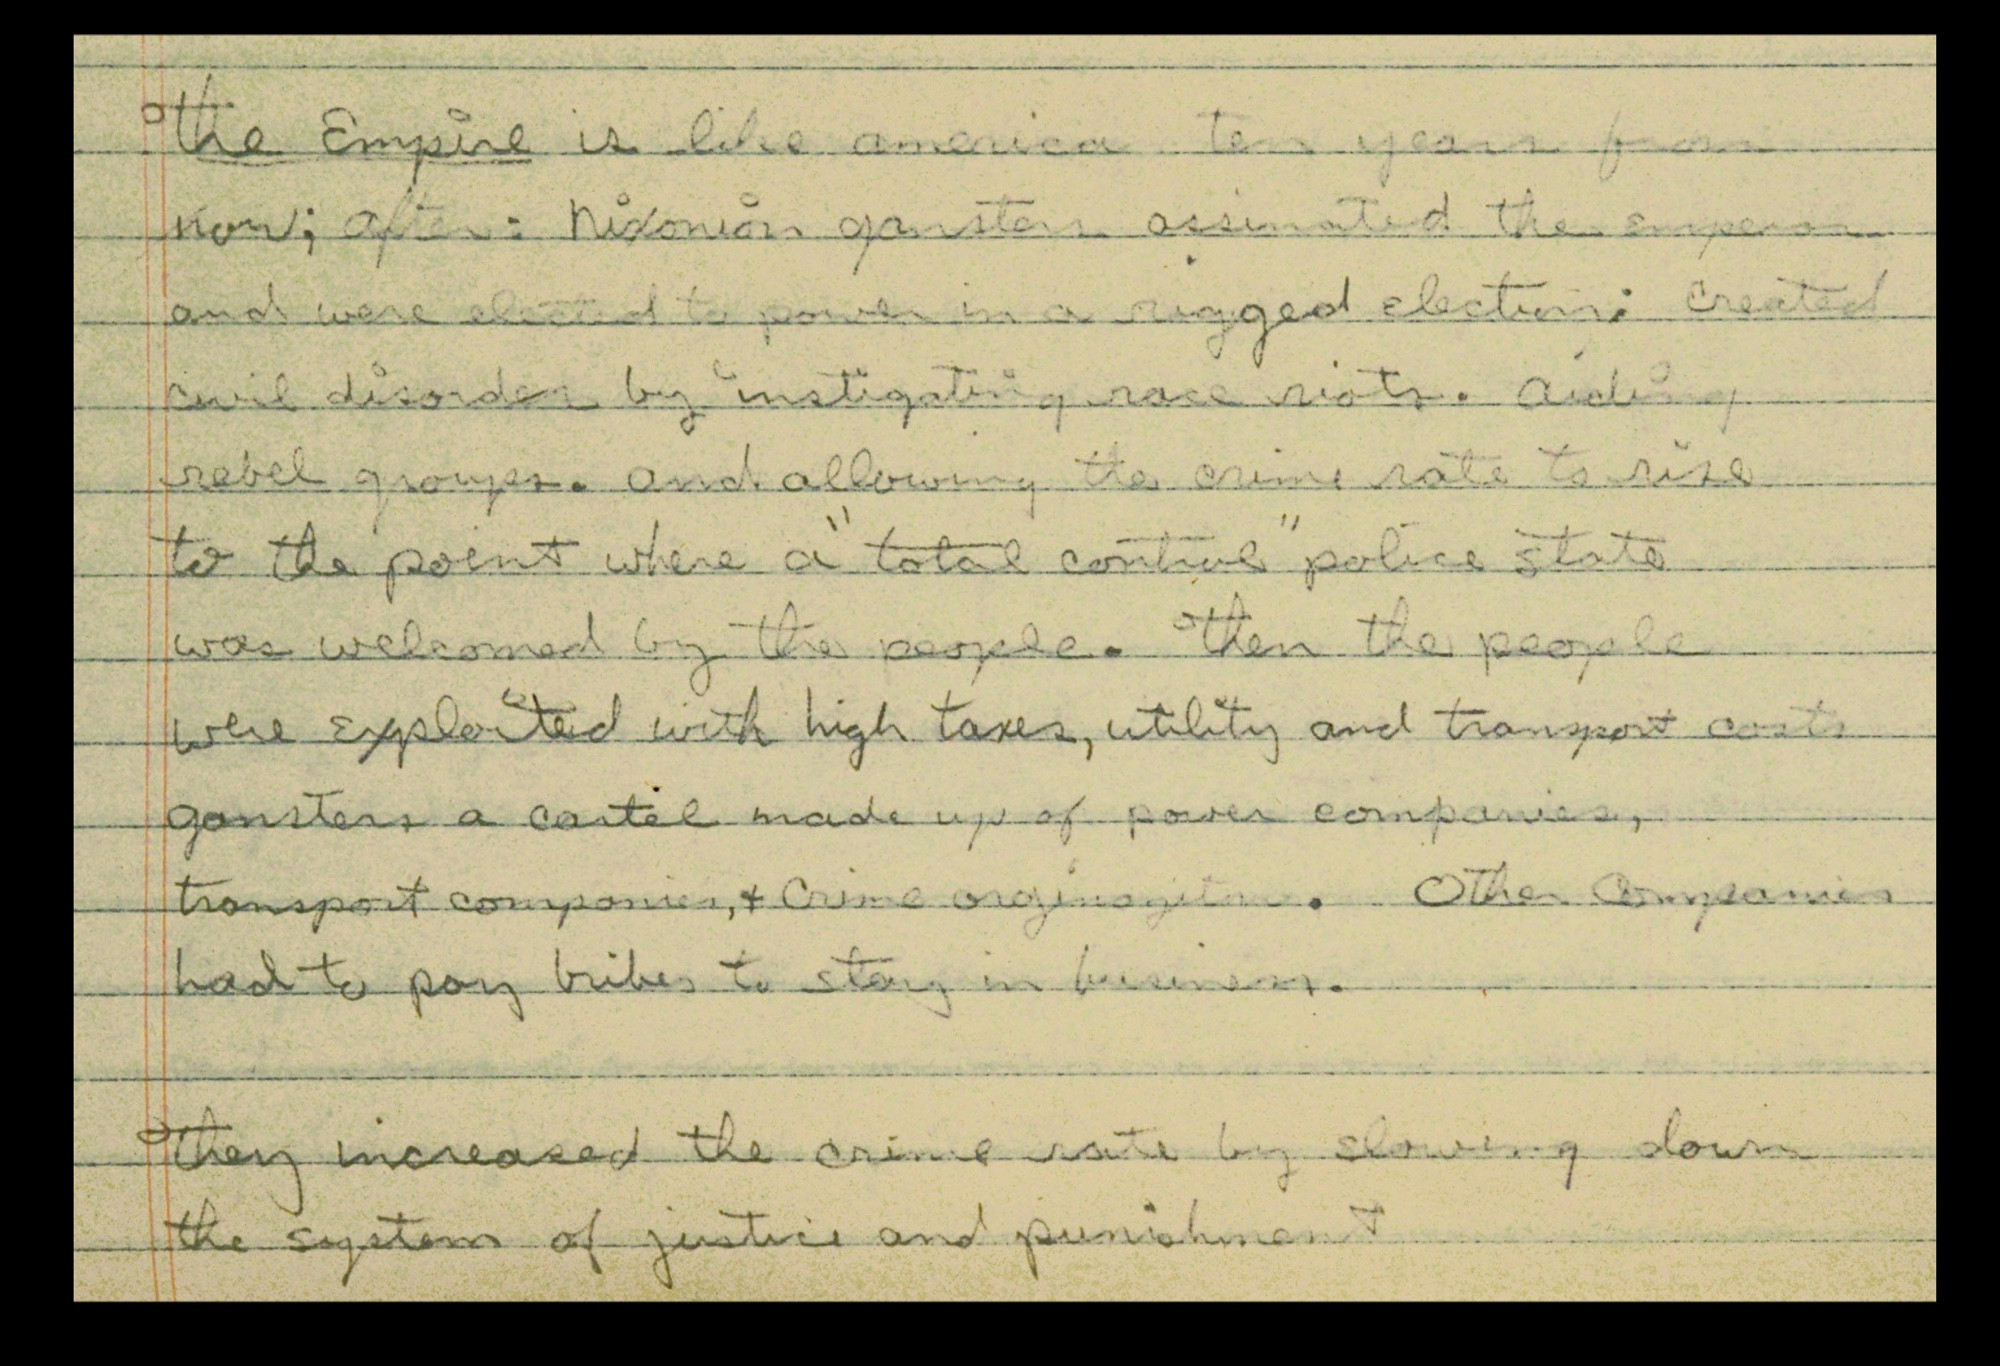 The Empire is like america ten years from
now; after: Nixonian gansters assinated the emperor
and were elected to power in a rigged election: Created
civil disorder by instigating race riots. Aiding
rebel groups. and allowing the crime rate to rise
to the point where a "total control" police state
was welcomed by the people. Then the people
were exploited with high taxes, utility and transport costs
gansters a cartel made up of power companies,
transport companies, + Crime. Other Companies
had to pay bribes to stay in business.
They increased the crime rate by slowing down
the system of justice and punishment